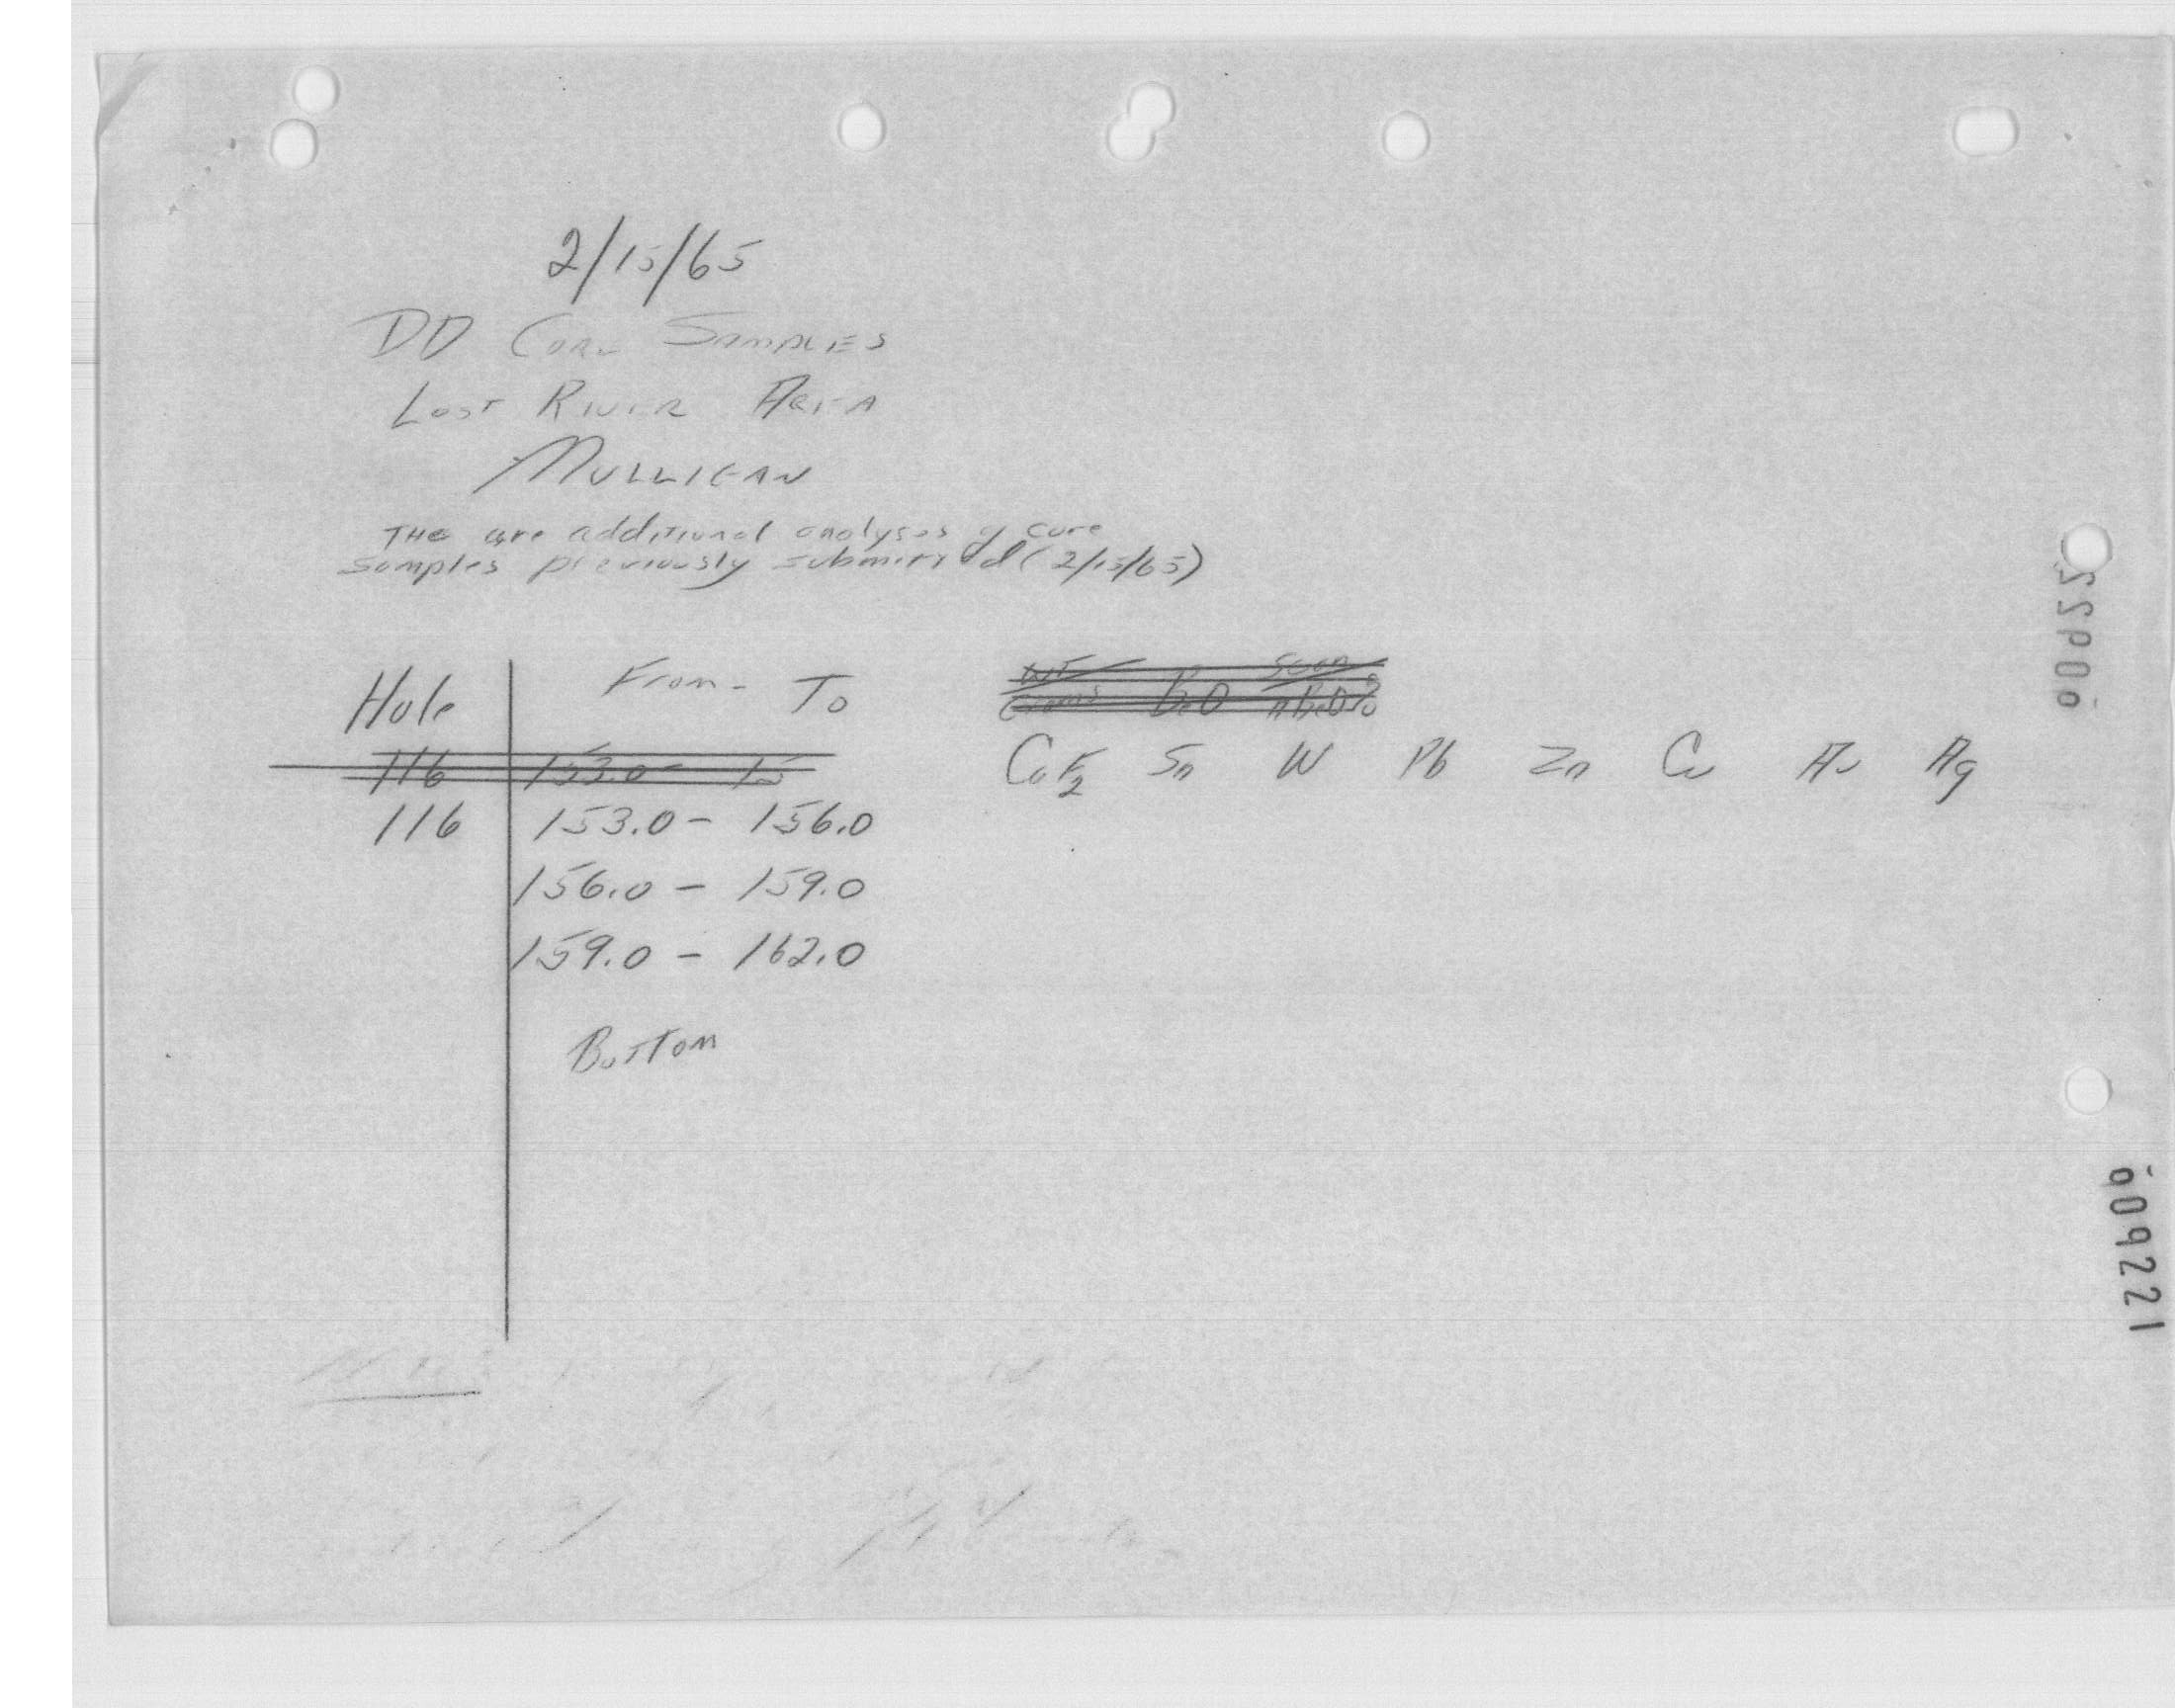 2/15/65
DD Core Samples
Lost River Area
Mulligan
THE are additional analyses of core
samples previously submitted (2/15/65)
Hole From - To
Wt grams BeO Scan BeO%
116 153.0 - 15
CaF2 Sn W Pb Zn Cu Au Ag
116 153.0 - 156.0
156.0 - 159.0
159.0 - 162.0
Bottom
600922
600922
1